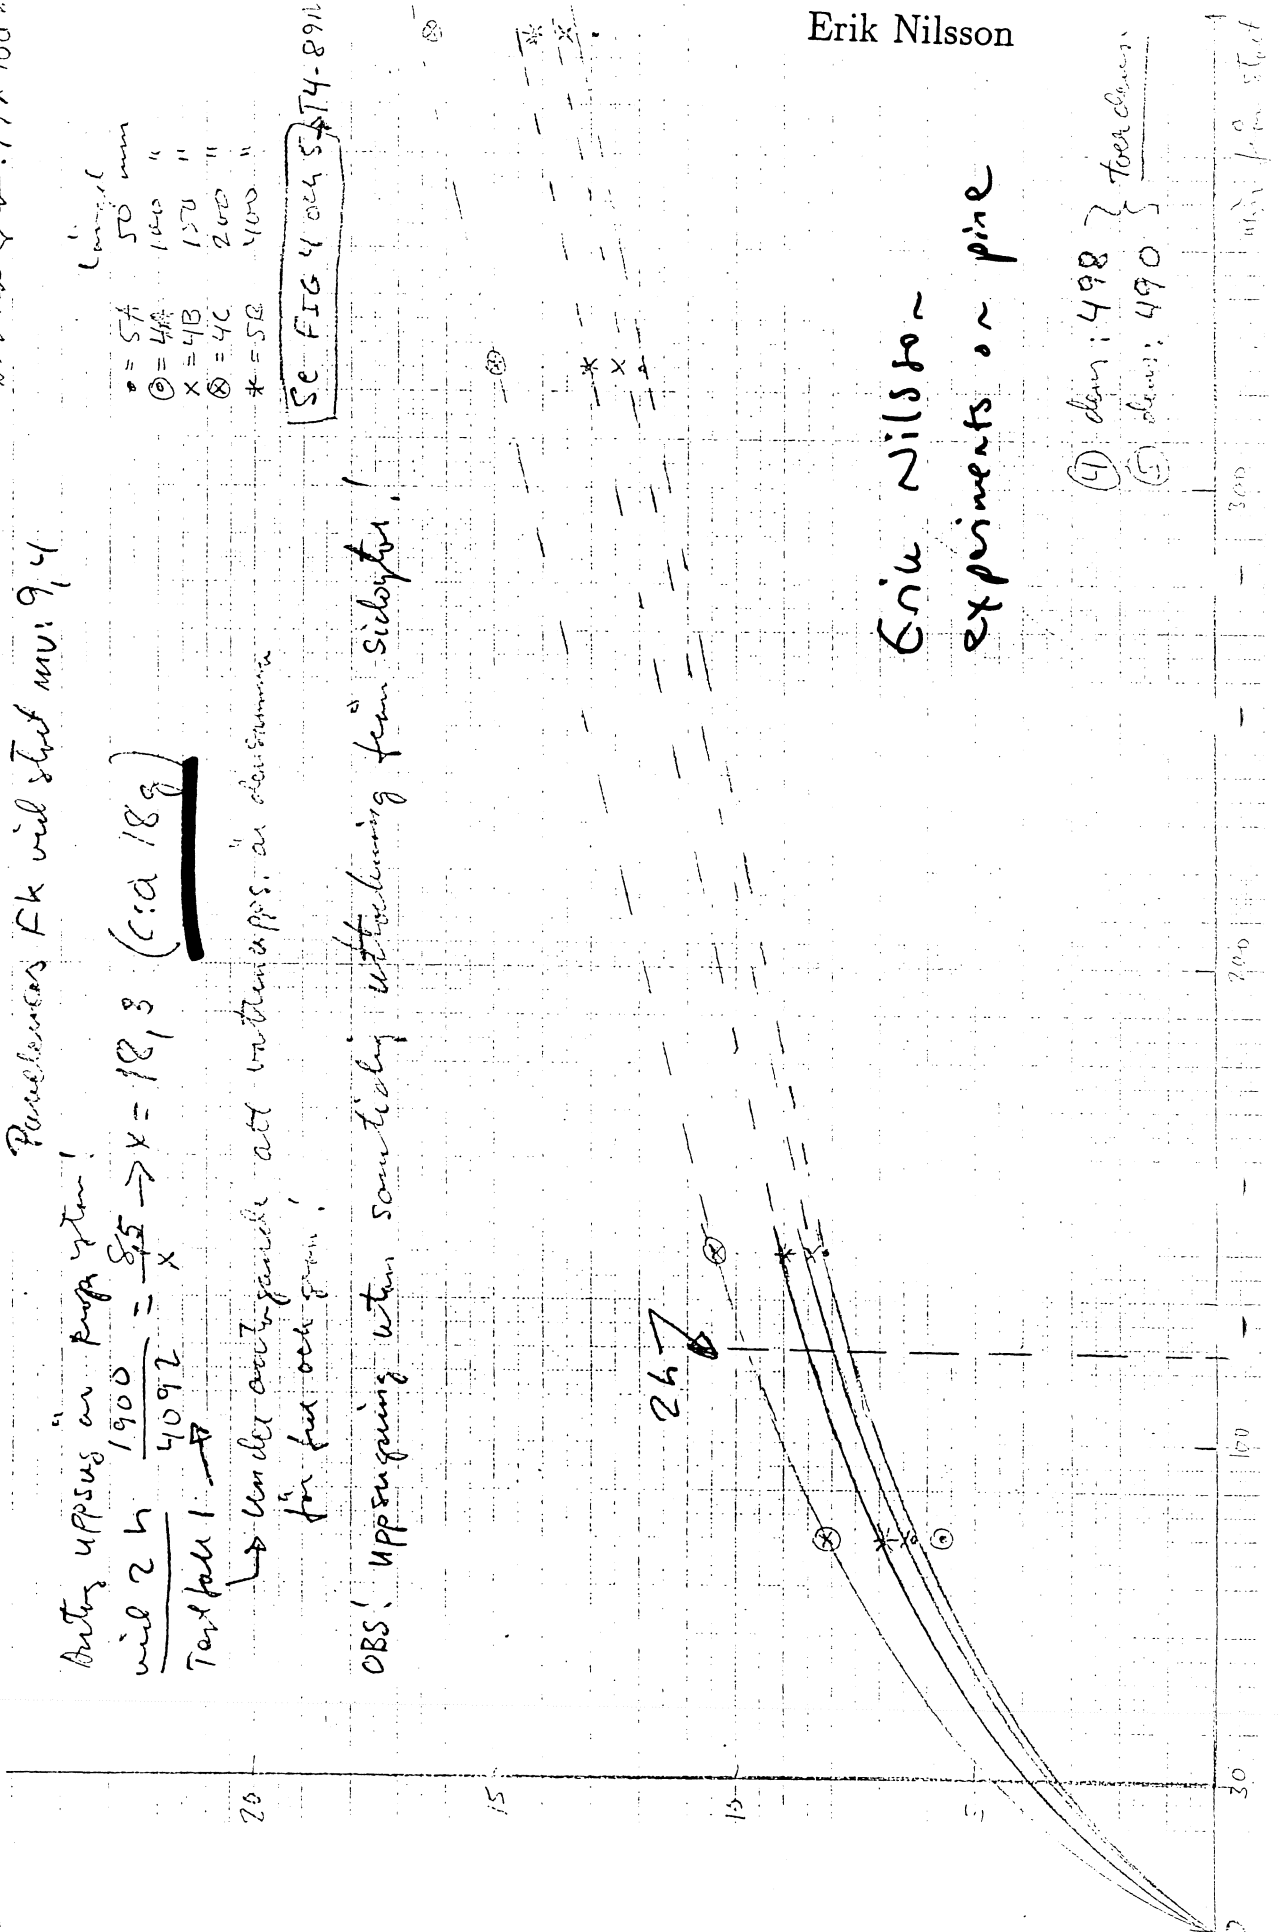 Erik Nilsson
vid start mv: 9,4
Antag uppsug är prop. ytan!
vid 2 h 1900 / 4092 = 8,5 / x → x = 18,3 (c:a 18 g)
Testfall 1
→ Under antagande att vattenupps. är densamma
för furu och gran!
OBS! Uppsugning utan samtidig uttorkning från sidoytor!
Längd
• = 5A 50 mm
⊙ = 4A 100 "
x = 4B 150 "
⊗ = 4C 200 "
* = 5B 400 "
Se FIG 4 och 5
T4-891
2h
Erik Nilsson
experiments on pine
④ dens: 498 } torrdens.
⑤ dens: 490
20
15
10
5
0
30
100
200
300